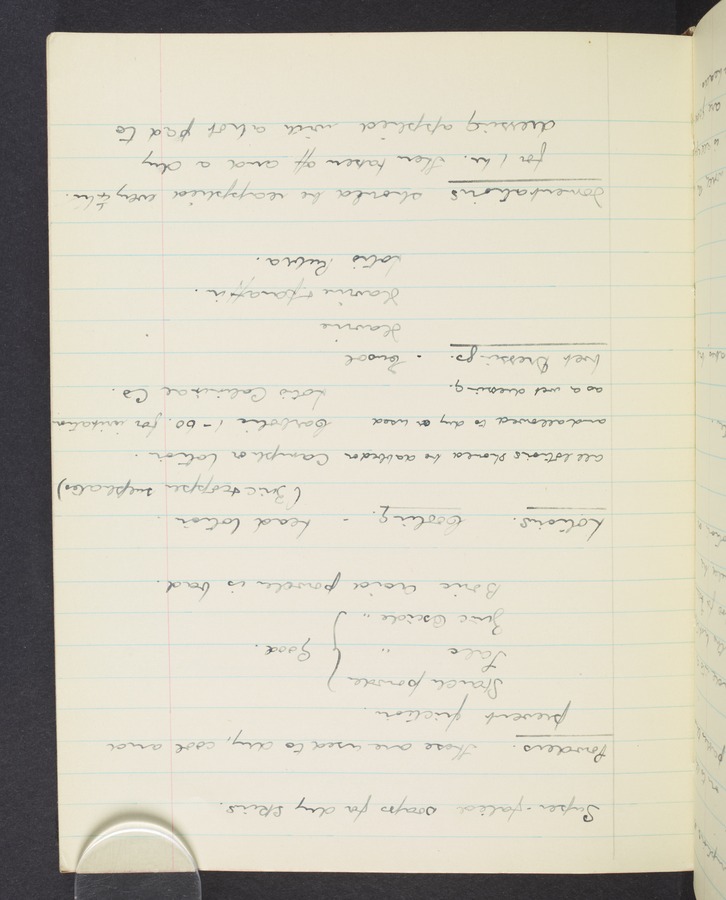 Super-fatted soaps for dry skins.
Powders. These are used to dry, cool and
prevent friction.
Starch powder
Talc " } Good.
Zinc Oxide "
Boric Acid powder is bad.
Lotions. Cooling. - Lead lotion.
(Zinc & copper sulphates)
all lotions should be dabbed on Camphor lotion.
and allowed to dry or used Carbolic 1-60. for irritation
as a wet dressing. Lotio Calaminae Co.
Wet Dressings. - Eusol
Flavine
Flavine & paraffin.
Lotio Rubra.
Fomentations should be reapplied every 4 hr.
for 1 hr. then taken off and a dry
dressing applied with a hot pad to